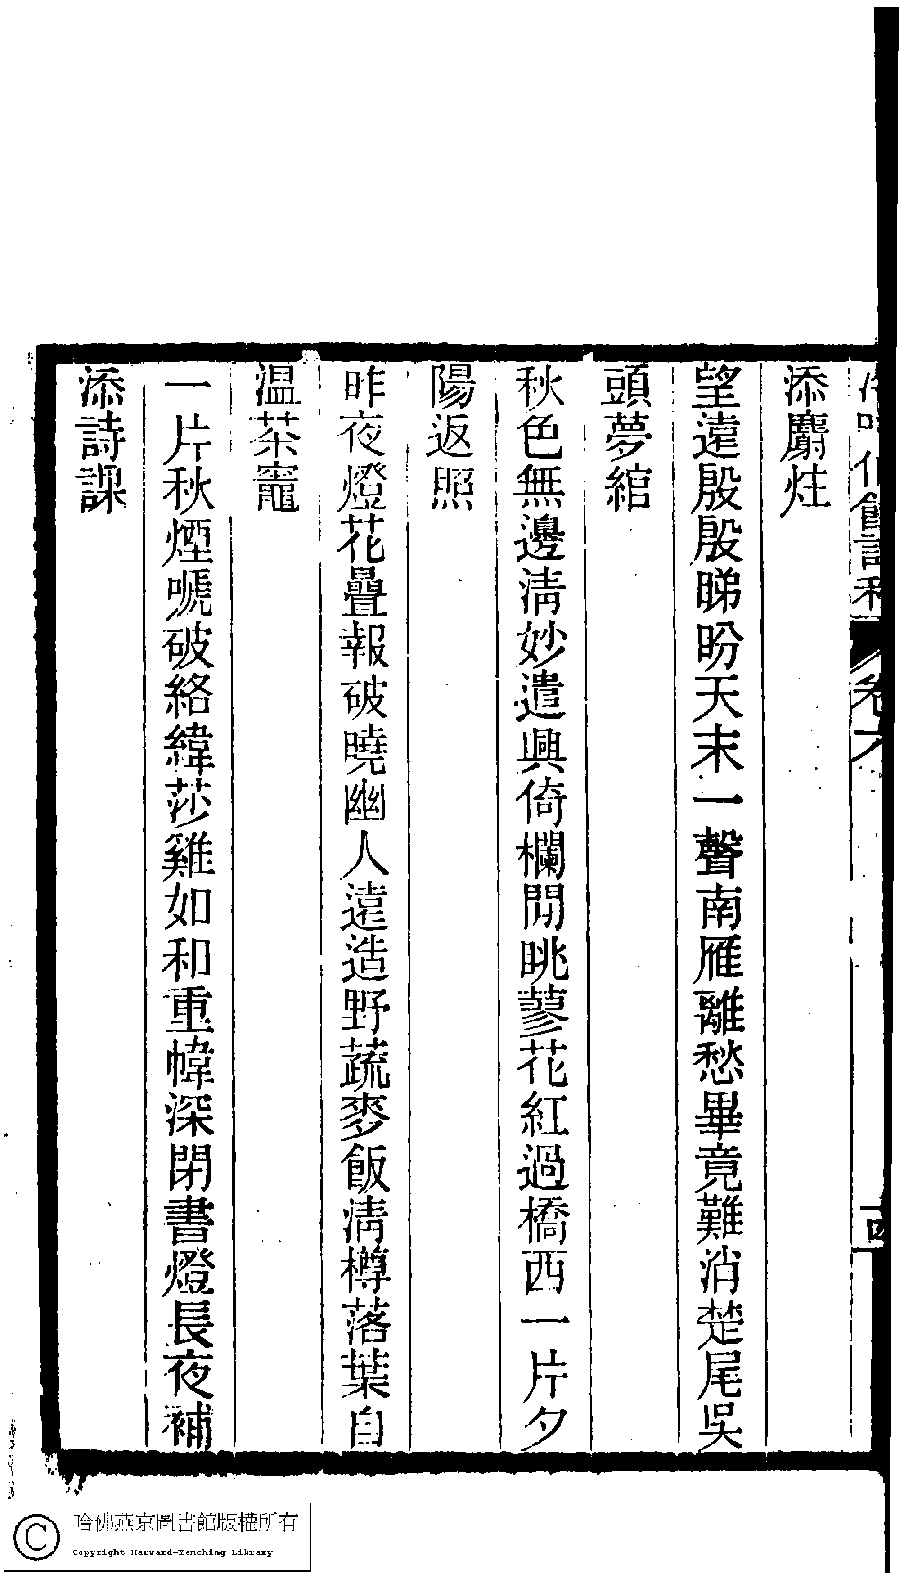 添麝炷
望遠殷殷睇盼天末一聲南雁離愁畢竟難消楚尾吳
頭夢綰
秋色無邊淸妙遣興倚欄閒眺蓼花紅過橋西一片夕
陽返照
昨夜燈花疊報破曉幽人遠造野蔬麥飯淸樽落葉自
温茶竈
一片秋煙嗁破絡緯莎雞如和重幃深閉書燈長夜補
添詩課
哈佛燕京圖書館版權所有
Copyright Harvard-Yenching Library